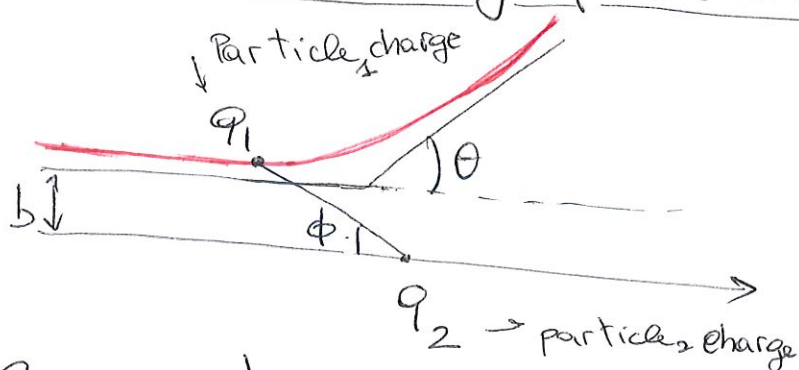 ↓ Particle, charge
1
q₁
θ
b
ϕ
q₂ → particle₂ charge